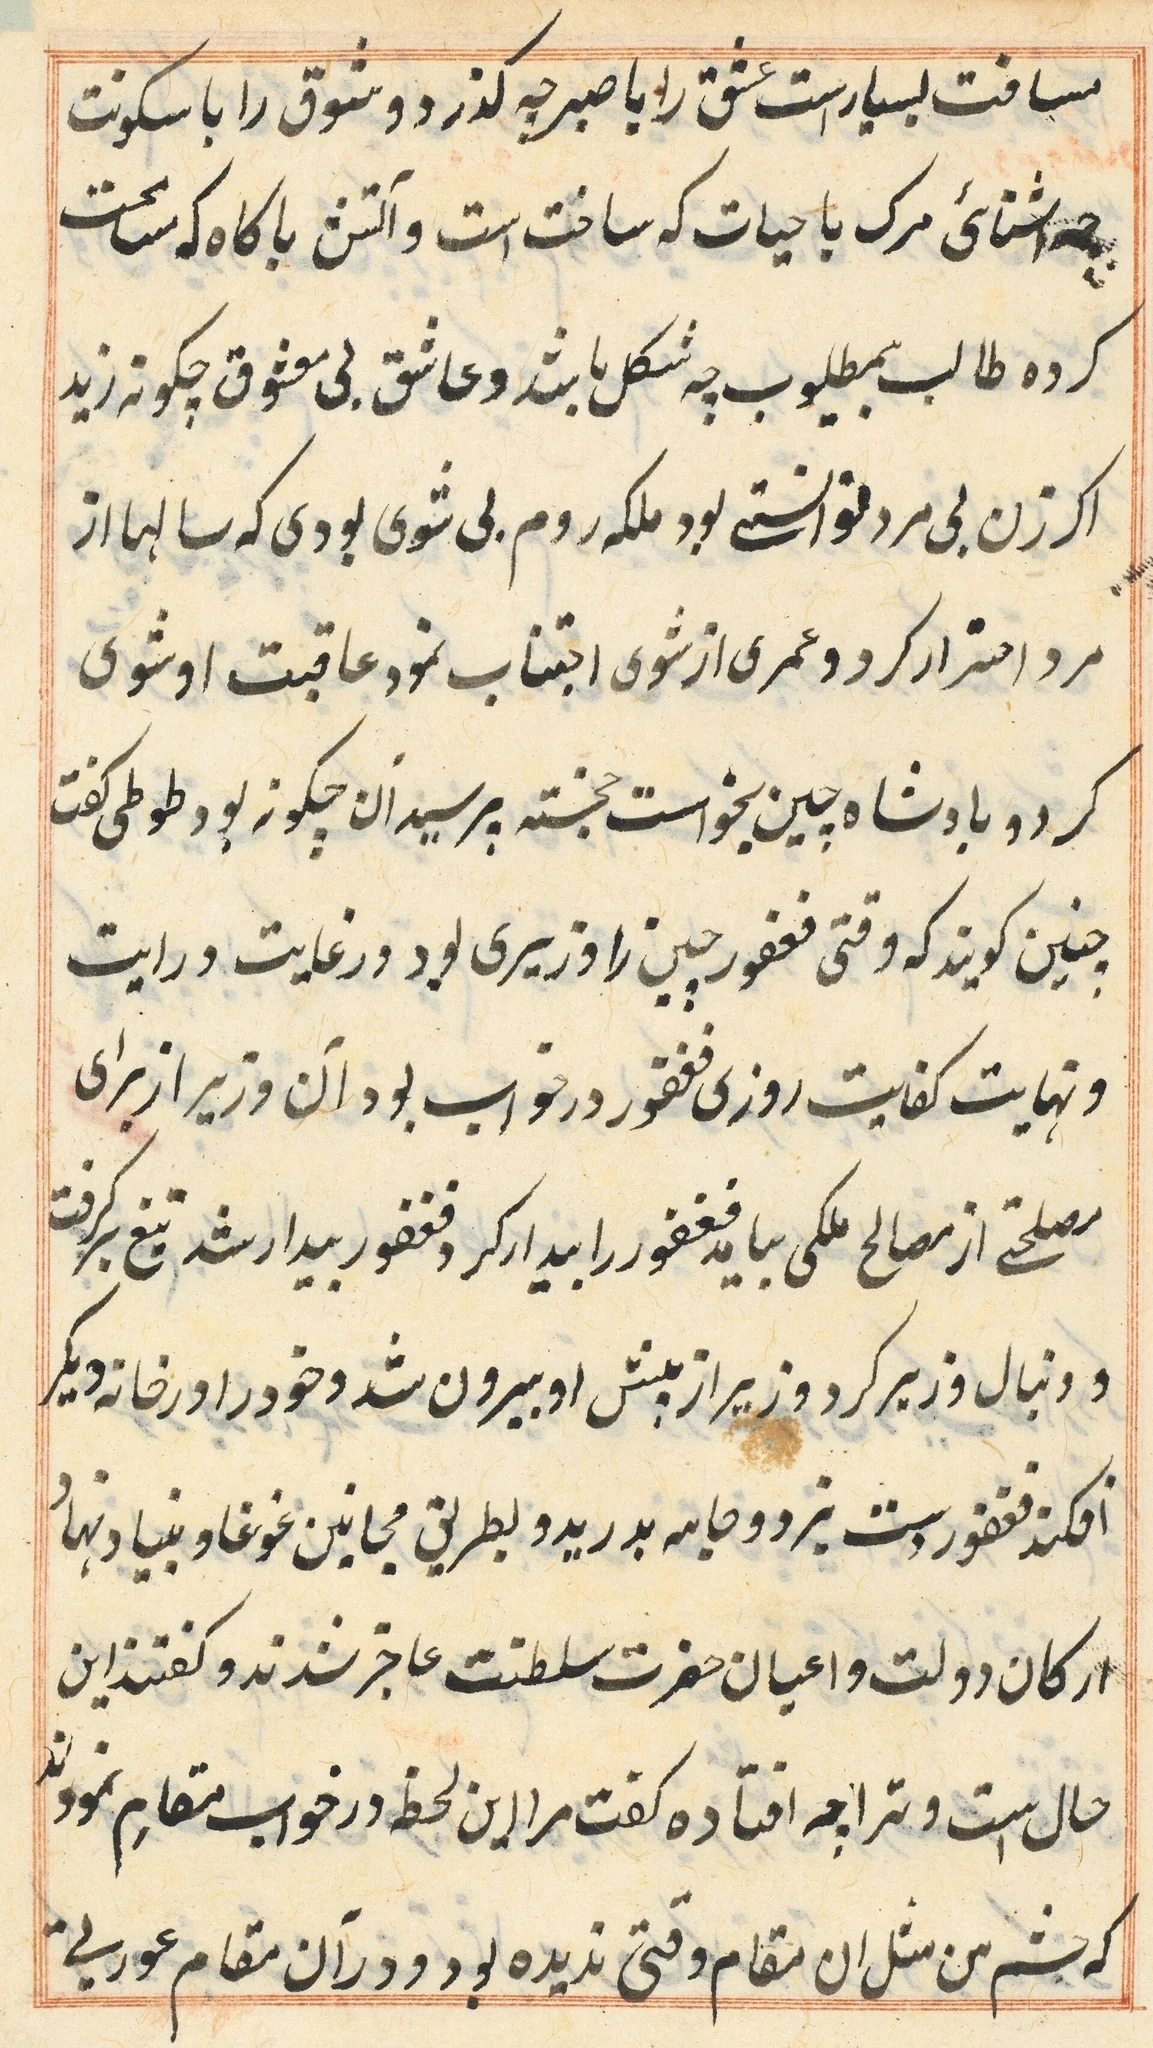 مسافت بسیار است عشق را با صبر چه کذر دو شوق را با سکونت
چه اشنائ مرک با حیات که ساخت است و آتش با کاه که ساخت
کرده طالب بمطلوب چه شکل باشد و عاشق بی معشوق چکونه زید
اکر زن بی مرد توانستے بود ملکه روم بی شوی بودی که سالها از
مرد احتراز کرد و عمری از شوی اجتناب نمود عاقبت او شوی
کرد و بادشاه چین بخواست خجسته پرسید آن چکونه بود طوطی کفت
چنین کویند که وقتی فغفور چین را وزیری بود در غایت درایت
و نهایت کفایت روزی فغفور در خواب بود آن وزیر از برای
مصلحتے از مصالح ملکی بیامد فغفور را بیدار کرد فغفور بیدار شد تیغ برکرفت
و دنبال وزیر کرد وزیر از پیش او بیرون شد و خود را در خانه دیکر
افکند فغفور دست بزد و جامه بدرید و بطریق مجانین غوغا و بنیاد نهاد
ارکان دولت و اعیان حضرت سلطنت عاجز شدند و کفتند این
حال است و ترا چه افتاده کفت مرا این لحظه در خواب مقام نمودند
که چشم من مثل ان مقام وقتی ندیده بود و در آن مقام عوریت